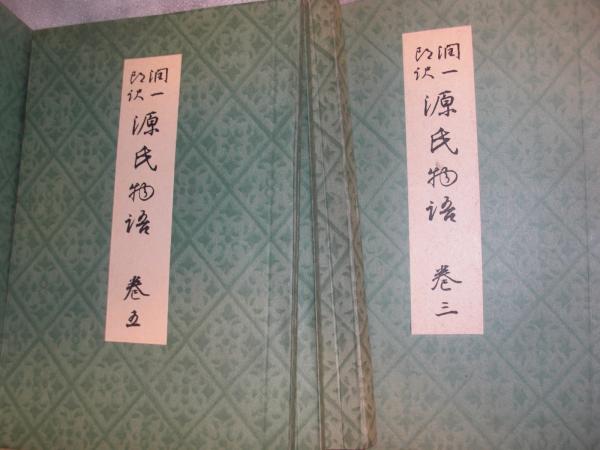 潤一郎訳
源氏物語 巻五
潤一郎訳
源氏物語 巻三